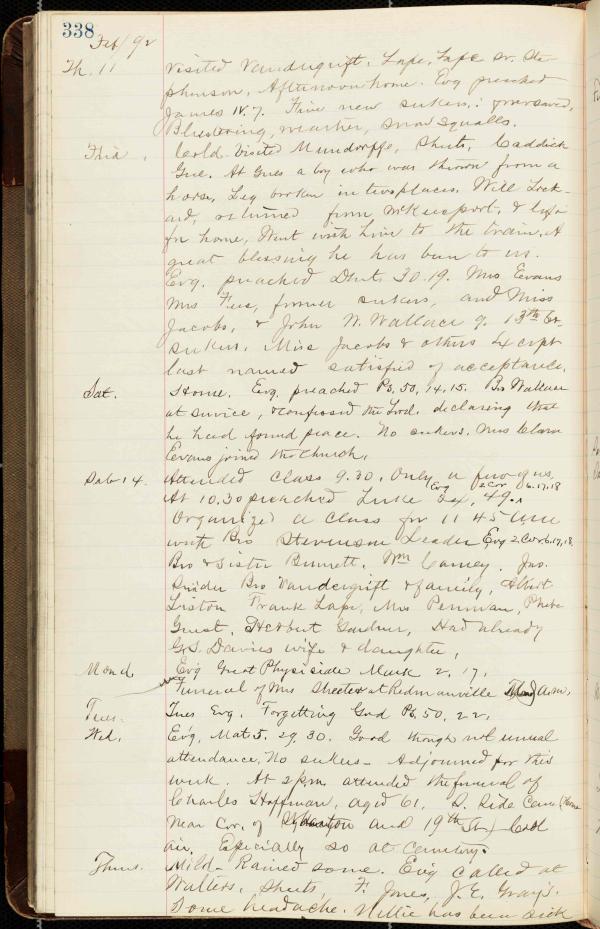 338
Feb/92
Th. 11 Visited Vandergrift, Lape, Lape Sr. Ste-
phenson, Afternoon home. Evg preached
James IV. 7. Five new seekers,
Blustering, weather, snow squalls.
Frid. Cold. Visited Mundorffs, Shuts, Caddick
Gue. At Gues a boy who was thrown from a
horse, Leg broken in two places. Will Lock-
ard, returned from McKeesport, & left
for home, Went with him to the train. A
great blessing he has been to us.
Evg. preached Deut. 30.19. Mrs Evans
Mrs Fees, former seekers, and Miss
Jacobs, & John W. Wallace 9. 13th St.
seekers. Miss Jacobs & others except
last named satisfied of acceptance.
Sat. Home. Evg. preached Ps. 50, 14, 15. Bro Wallace
at service, & confessed the Lord. declaring that
he had found peace. No seekers. Mrs Clara
Evans joined the church.
Sab 14. Attended class 9.30. Only a few of us,
At 10.30 preached Luke 24, 49. Evg 2 Cor 6.17,18
Organized a class for 11 45 A.M.
with Bro Stevenson Leader Evg 2, Cor. 6.17,18,
Bro & Sister Bennett. Wm Carney. Jno.
Snider Bro Vandergrift & family, Albert
Liston Frank Lape, Mrs Penman, Phebe
Guest, Herbert Gardner, Had already
G.S. Davies wife & daughter,
Mond Evg Great Physician Mark 2, 17.
Funeral of Mrs Streeter at Redmanville a.m.
Tues. Tues Evg. Forgetting God Ps. 50, 22,
Wed. Evg. Mat 5. 29, 30. Good though not usual
attendance, No seekers - Adjourned for this
week. At 2 p.m. attended the funeral of
Charles Hoffman, aged 61. S. Side Cem (House
near Cor. of and 19th St.) Cold
air, Especially so at Cemetery.
Thurs. Mild - Rained some. Evg called at
Walters, Shuts, F. Jones, J. E. Gray's.
Some headache. Nellie has been sick